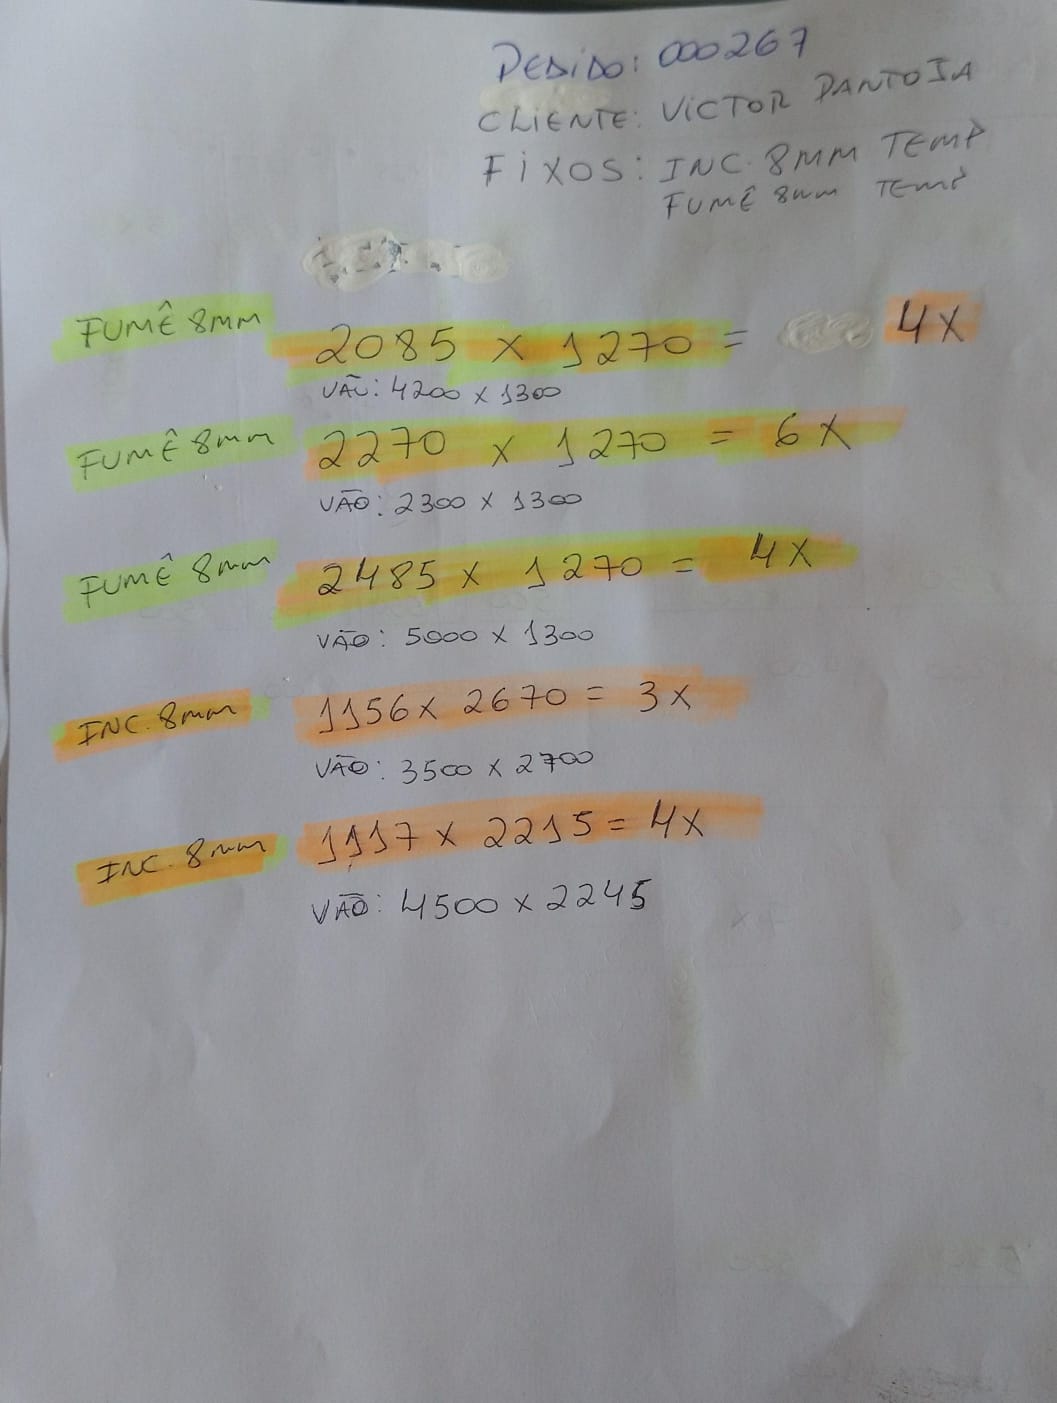 PEDIDO: 000267
CLIENTE: VICTOR PANTOJA
FIXOS: INC. 8MM TEMP
FUMÊ 8mm TEMP
FUMÊ 8MM 2085 x 1270 = 4X
VÃO: 4200 x 1300
FUMÊ 8mm 2270 x 1270 = 6X
VÃO: 2300 x 1300
FUMÊ 8mm 2485 x 1270 = 4X
VÃO: 5000 x 1300
INC. 8mm 1156 x 2670 = 3X
VÃO: 3500 x 2700
INC. 8mm 1117 x 2215 = 4X
VÃO: 4500 x 2245